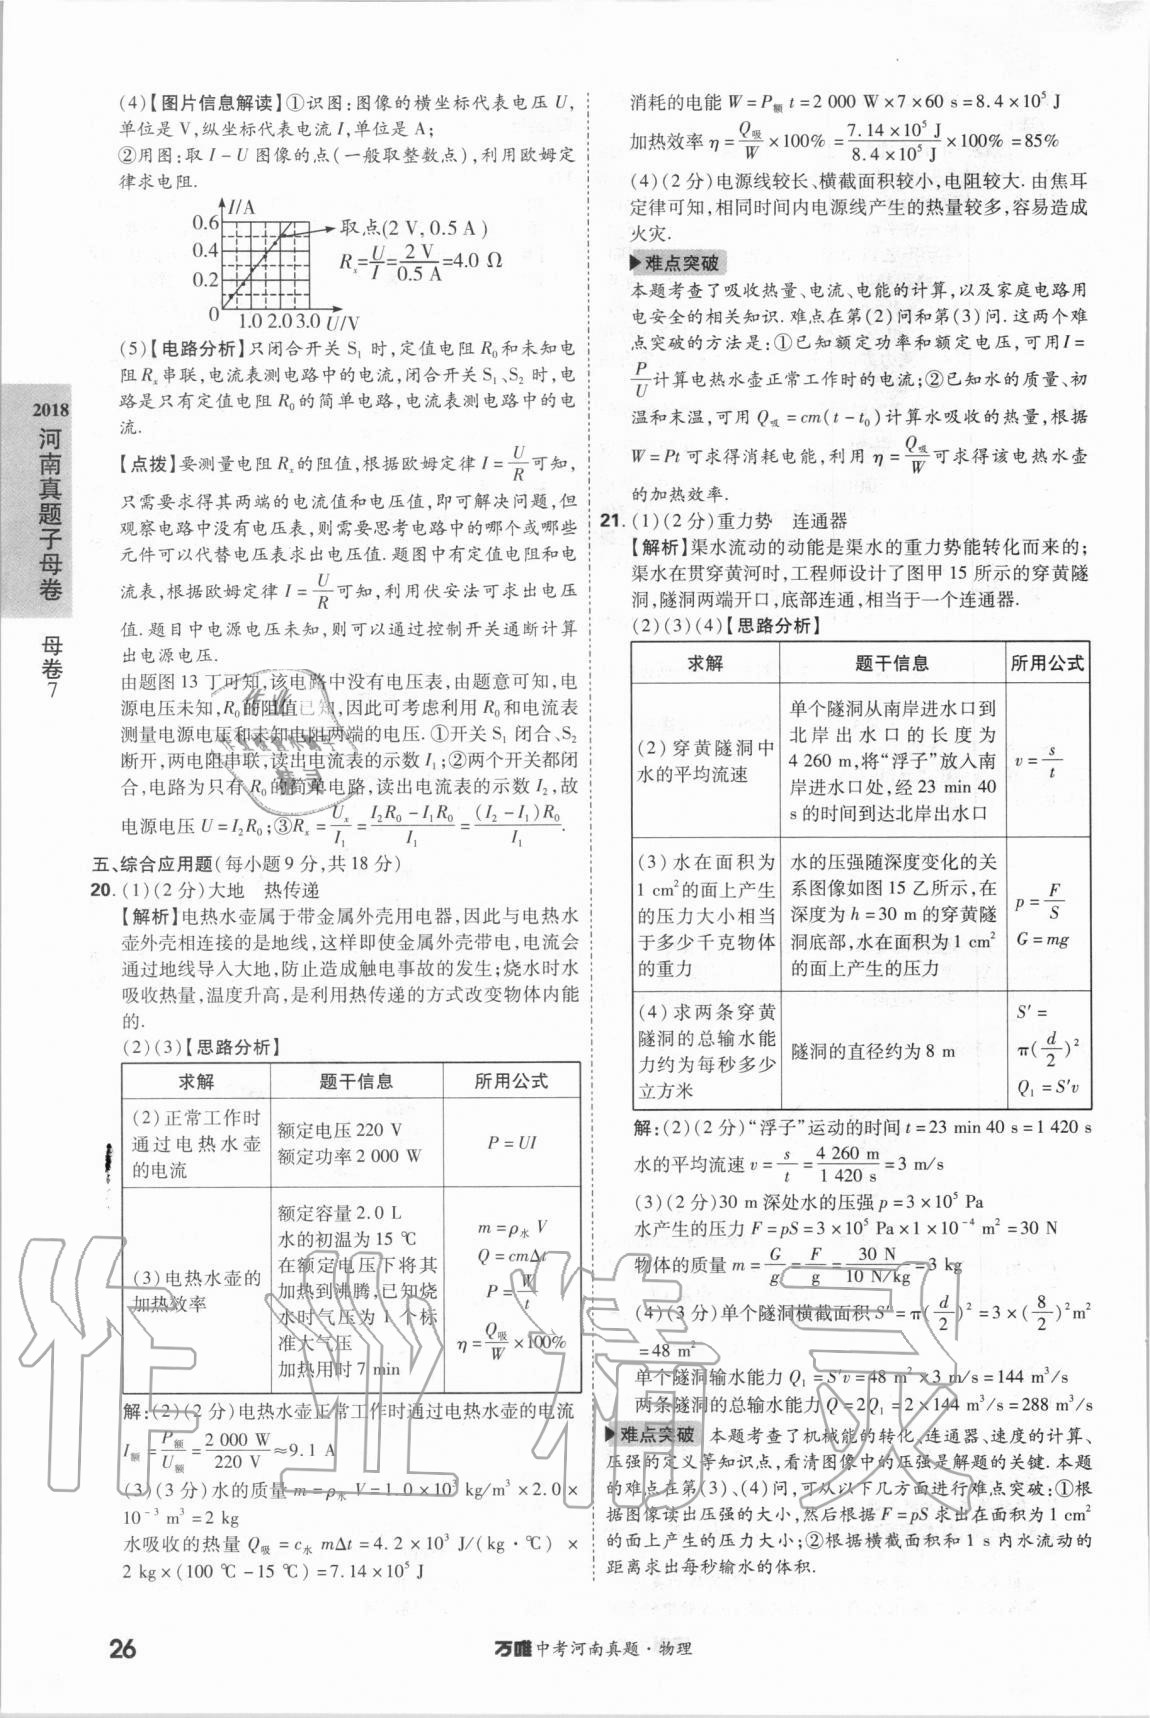 (4)【图片信息解读】①识图:图像的横坐标代表电压 U,
单位是 V,纵坐标代表电流 I,单位是 A;
②用图:取 I-U 图像的点(一般取整数点),利用欧姆定
律求电阻.
I/A
0.6
0.4
0.2
0
1.0 2.0 3.0 U/V
取点(2 V,0.5 A)
Rₓ=U/I=2 V/0.5 A=4.0 Ω
(5)【电路分析】只闭合开关 S₁ 时,定值电阻 R₀和未知电
阻 Rₓ串联,电流表测电路中的电流,闭合开关 S₁、S₂ 时,电
路是只有定值电阻 R₀的简单电路,电流表测电路中的电
流.
【点拨】要测量电阻 Rₓ的阻值,根据欧姆定律 I=U/R可知,
只需要求得其两端的电流值和电压值,即可解决问题,但
观察电路中没有电压表,则需要思考电路中的哪个或哪些
元件可以代替电压表求出电压值.题图中有定值电阻和电
流表,根据欧姆定律 I=U/R可知,利用伏安法可求出电压
值.题目中电源电压未知,则可以通过控制开关通断计算
出电源电压.
由题图 13 丁可知,该电路中没有电压表,由题意可知,电
源电压未知,R₀的阻值已知,因此可考虑利用 R₀和电流表
测量电源电压和未知电阻两端的电压.①开关 S₁ 闭合、S₂
断开,两电阻串联,读出电流表的示数 I₁;②两个开关都闭
合,电路为只有 R₀的简单电路,读出电流表的示数 I₂,故
电源电压 U=I₂R₀;③Rₓ=Uₓ/I₁=(I₂R₀-I₁R₀)/I₁=(I₂-I₁)R₀/I₁.
五、综合应用题(每小题 9 分,共 18 分)
20.(1)(2 分)大地 热传递
【解析】电热水壶属于带金属外壳用电器,因此与电热水
壶外壳相连接的是地线,这样即使金属外壳带电,电流会
通过地线导入大地,防止造成触电事故的发生;烧水时水
吸收热量,温度升高,是利用热传递的方式改变物体内能
的.
(2)(3)【思路分析】
求解 题干信息 所用公式
(2)正常工作时
通过电热水壶
的电流
额定电压 220 V
额定功率 2 000 W
P=UI
(3)电热水壶的
加热效率
额定容量 2.0 L
水的初温为 15 ℃
在额定电压下将其
加热到沸腾,已知烧
水时气压为 1 个标
准大气压
加热用时 7 min
m=ρ水 V
Q=cmΔt
P=W/t
η=Q吸/W×100%
解:(2)(2 分)电热水壶正常工作时通过电热水壶的电流
I额=P额/U额=2 000 W/220 V≈9.1 A
(3)(3 分)水的质量 m=ρ水 V=1.0×10³ kg/m³×2.0×
10⁻³ m³=2 kg
水吸收的热量 Q吸=c水 mΔt=4.2×10³ J/(kg·℃)×
2 kg×(100 ℃-15 ℃)=7.14×10⁵ J
消耗的电能 W=P额 t=2 000 W×7×60 s=8.4×10⁵ J
加热效率 η=Q吸/W×100%=7.14×10⁵ J/8.4×10⁵ J×100%=85%
(4)(2 分)电源线较长、横截面积较小,电阻较大.由焦耳
定律可知,相同时间内电源线产生的热量较多,容易造成
火灾.
难点突破
本题考查了吸收热量、电流、电能的计算,以及家庭电路用
电安全的相关知识.难点在第(2)问和第(3)问.这两个难
点突破的方法是:①已知额定功率和额定电压,可用 I=
P/U计算电热水壶正常工作时的电流;②已知水的质量、初
温和末温,可用 Q吸=cm(t-t₀)计算水吸收的热量,根据
W=Pt 可求得消耗电能,利用 η=Q吸/W可求得该电热水壶
的加热效率.
21.(1)(2 分)重力势 连通器
【解析】渠水流动的动能是渠水的重力势能转化而来的;
渠水在贯穿黄河时,工程师设计了图甲 15 所示的穿黄隧
洞,隧洞两端开口,底部连通,相当于一个连通器.
(2)(3)(4)【思路分析】
求解 题干信息 所用公式
(2)穿黄隧洞中
水的平均流速
单个隧洞从南岸进水口到
北岸出水口的长度为
4 260 m,将“浮子”放入南
岸进水口处,经 23 min 40
s 的时间到达北岸出水口
v=s/t
(3)水在面积为
1 cm²的面上产生
的压力大小相当
于多少千克物体
的重力
水的压强随深度变化的关
系图像如图 15 乙所示,在
深度为 h=30 m 的穿黄隧
洞底部,水在面积为 1 cm²
的面上产生的压力
p=F/S
G=mg
(4)求两条穿黄
隧洞的总输水能
力约为每秒多少
立方米
隧洞的直径约为 8 m
S′=
π(d/2)²
Q₁=S′v
解:(2)(2 分)“浮子”运动的时间 t=23 min 40 s=1 420 s
水的平均流速 v=s/t=4 260 m/1 420 s=3 m/s
(3)(2 分)30 m 深处水的压强 p=3×10⁵ Pa
水产生的压力 F=pS=3×10⁵ Pa×1×10⁻⁴ m²=30 N
物体的质量 m=G/g=F/g=30 N/10 N/kg=3 kg
(4)(3 分)单个隧洞横截面积 S′=π(d/2)²=3×(8/2)²m²
=48 m²
单个隧洞输水能力 Q₁=S′v=48 m²×3 m/s=144 m³/s
两条隧洞的总输水能力 Q=2Q₁=2×144 m³/s=288 m³/s
难点突破 本题考查了机械能的转化、连通器、速度的计算、
压强的定义等知识点,看清图像中的压强是解题的关键.本题
的难点在第(3)、(4)问,可从以下几方面进行难点突破:①根
据图像读出压强的大小,然后根据 F=pS 求出在面积为 1 cm²
的面上产生的压力大小;②根据横截面积和 1 s 内水流动的
距离求出每秒输水的体积.
2018
河南真题子母卷
母卷7
26
万唯中考河南真题·物理
作业精灵